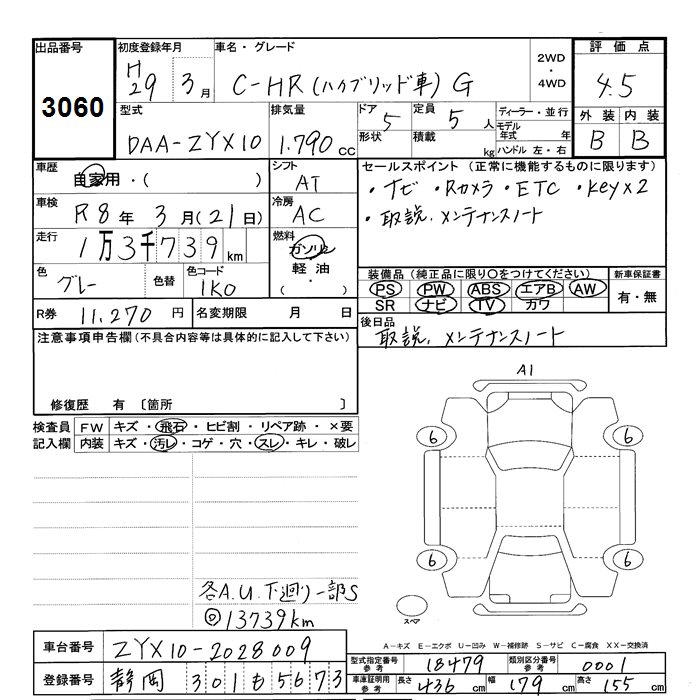 出品番号
3060
初度登録年月
H29 3月
車名・グレード
C-HR(ハイブリッド車) G
2WD
・
4WD
評価点
4.5
外装 内装
B B
型式
DAA-ZYX10
排気量
1.790cc
ドア
5
形状
定員
5人
積載
kg
ディーラー・並行
モデル年式 年
ハンドル 左・右
車歴
自家用・( )
シフト
AT
車検
R8年 3月(21日)
冷房
AC
走行
1万3千739km
燃料
ガソリン
軽油
( ・ )
色
グレー
色替
色コード
1K0
R券 11,270円
名変期限 月 日
セールスポイント(正常に機能するものに限ります)
・ナビ ・Rカメラ ・ETC ・keyx2
・取説、メンテナンスノート
装備品(純正品に限り○をつけてください)
PS PW ABS エアB AW
SR ナビ TV カワ
新車保証書
有・無
後日品
取説、メンテナンスノート
注意事項申告欄(不具合内容等は具体的に記入して下さい)
修復歴 有〔箇所 〕
検査員記入欄
FW キズ・飛石・ヒビ割・リペア跡・×要
内装 キズ・汚レ・コゲ・穴・スレ・キレ・破レ
各A.U.下廻り一部S
◎13739km
A1
6
6
6
6
スペア
A-キズ E-エクボ U-凹み W-補修跡 S-サビ C-腐食 XX-交換済
車台番号 ZYX10-2028009
登録番号 静岡 301も5673
型式指定番号 参考 18479
類別区分番号 参考 0001
車庫証明用 参考 長さ 436cm 幅 179cm 高さ 155cm